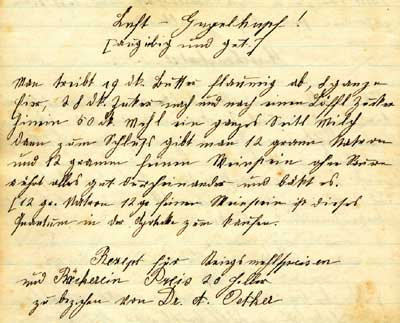 Luft – Gugelhupf!
[ausgiebig und gut.]
Man treibt 19 dk. Butter flaumig ab, 8 ganze
Eier, 28 dk. Zucker nach und nach einen Löffl Zucker
hinein 50 dk. Mehl ein ganzes Seitl Milch
dann zum Schluße gibt man 12 gramm Natron
und 12 gramm feinen Weinstein
rührt alles gut durcheinander und bäkt es.
[12 gr. Natron 12 gr. feiner Weinstein ist dieses
Quantum in der Apotheke zum kaufen.
Rezept für Kriegsmehlspeisen
und Bäckerein Preis 20 Heller
zu beziehen von Dr. A. Oetker